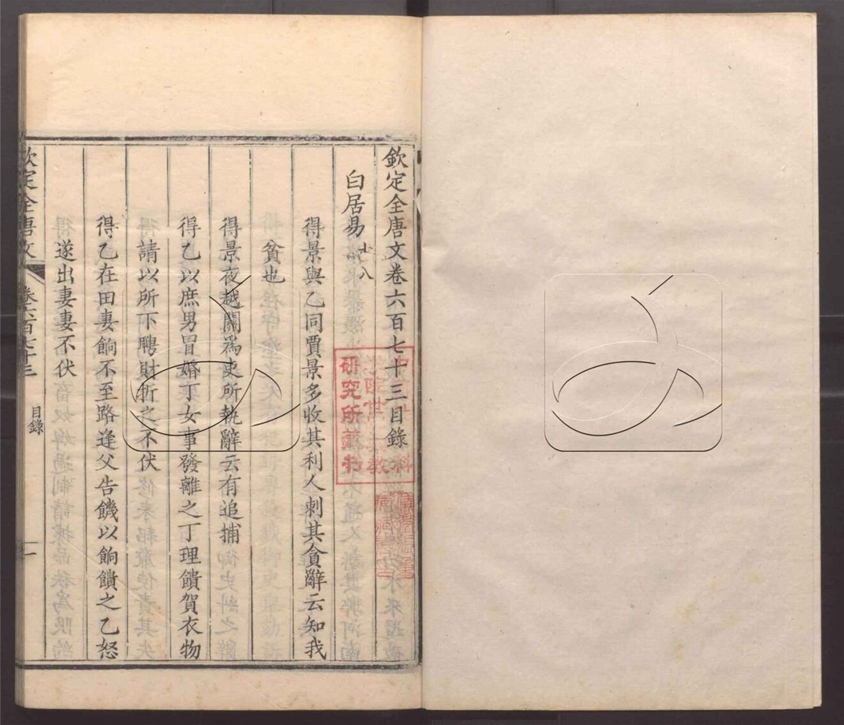 欽定全唐文卷六百七十三目錄
白居易十八
得景與乙同賈景多收其利人刺其貪辭云知我
貧也
得景夜越關為吏所執辭云有追捕
得乙以庶男冒婚丁女事發離之丁理饋賀衣物
請以所下聘財折之不伏
得乙在田妻餉不至路逢父告饑以餉饋之乙怒
遂出妻妻不伏
欽定全唐文 卷六百七十三 目錄 一
研究所藏書